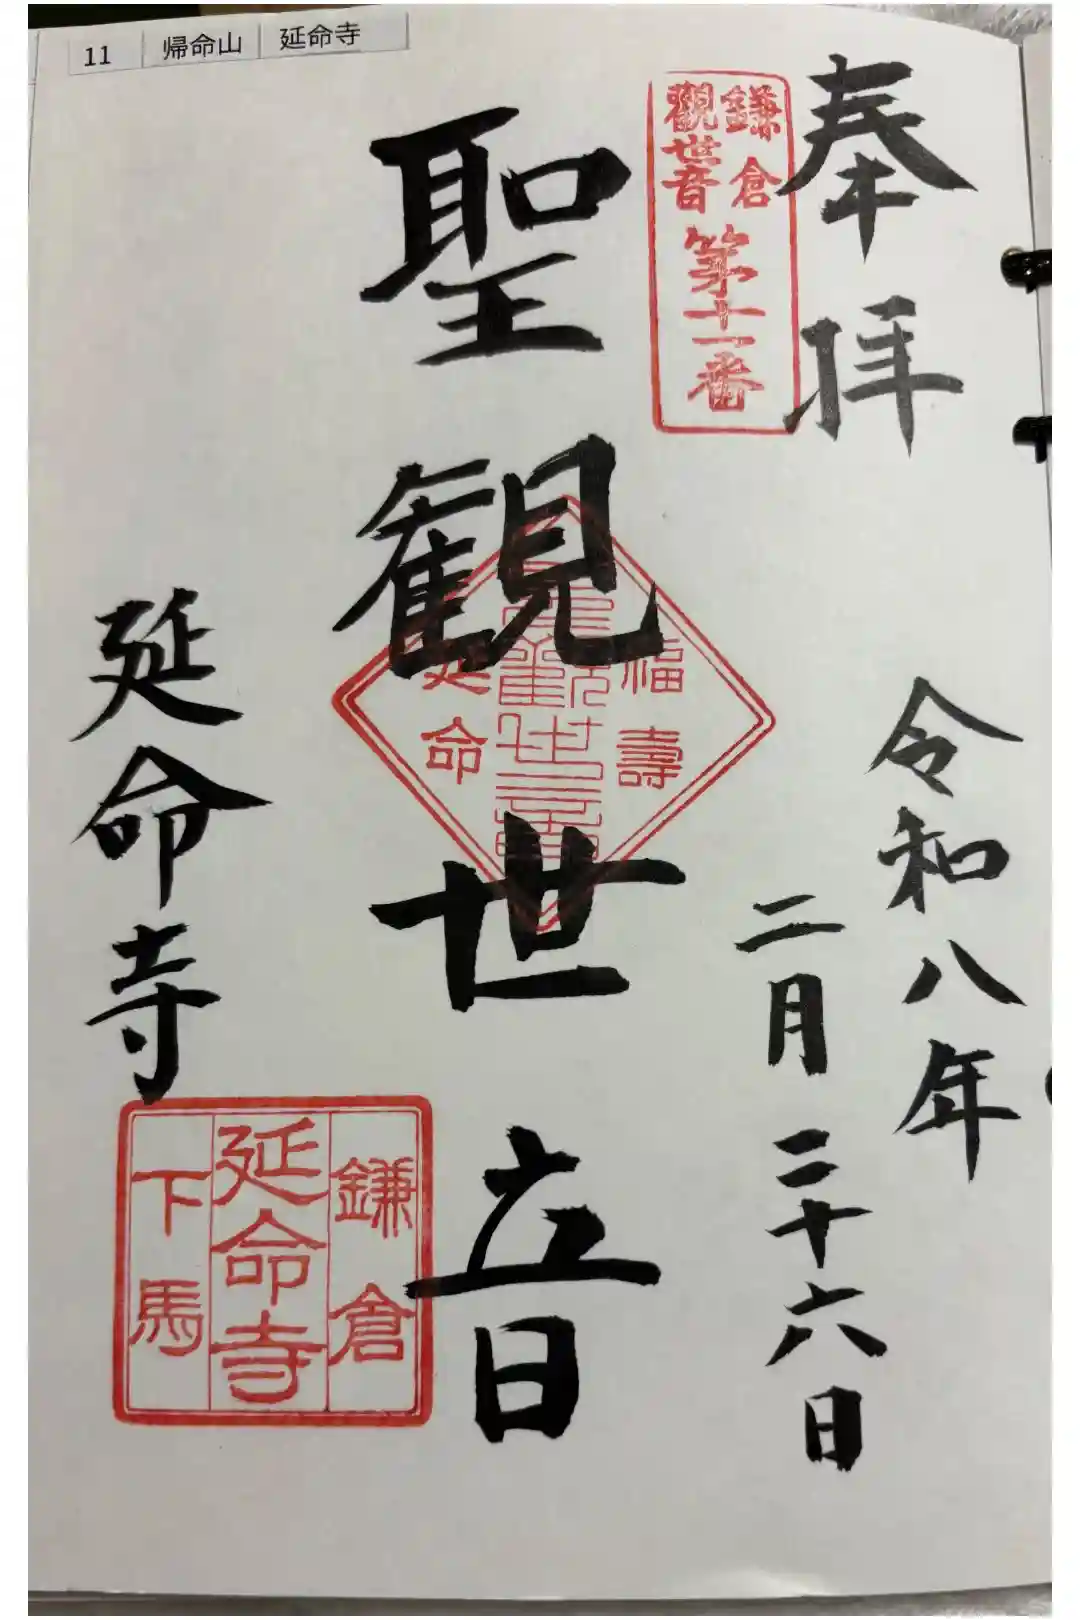 11 帰命山 延命寺
奉拝
鎌倉
觀世音
第十一番
令和八年
二月二十六日
聖観世音
福壽
聖觀世音
延命
延命寺
鎌倉
延命寺
下馬